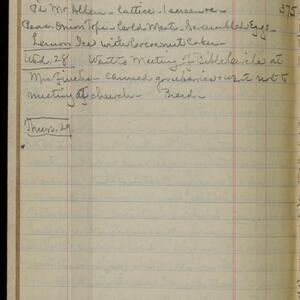 Pd Mr Allen - lattice -
375
Peas. Onion Tops - Cold Meat - Scrambled Eggs -
Lemon Ice with Cocoanut Cake -
Wed. 28. Went to Meeting of Bible Circle at
Mrs - canned gooseberries - went not to
meeting at church -
Thurs. 29.